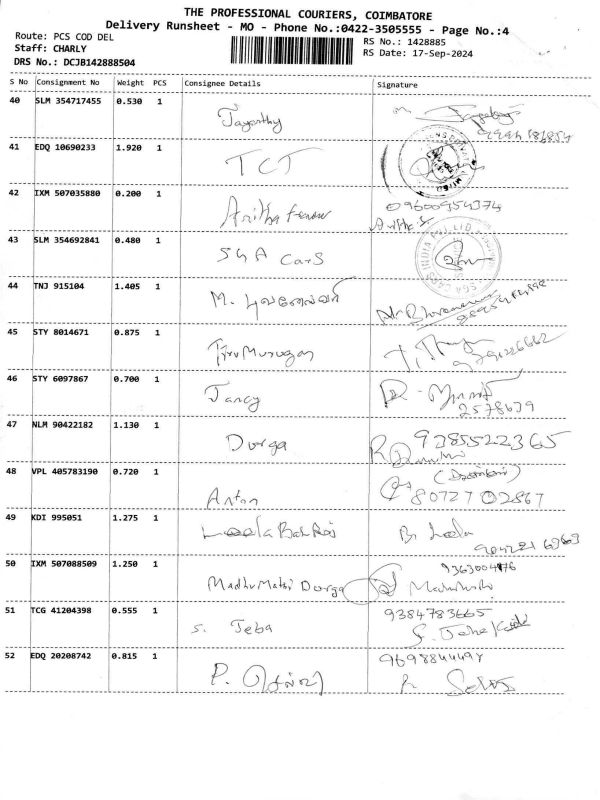 THE PROFESSIONAL COURIERS, COIMBATORE
Delivery Runsheet - MO - Phone No.:0422-3505555 - Page No.:4
Route: PCS COD DEL
Staff: CHARLY
DRS No.: DCJB142888504
RS No.: 1428885
RS Date: 17-Sep-2024
S No Consignment No Weight PCS Consignee Details Signature
40 SLM 354717455 0.530 1 Jayanthy
41 EDQ 10690233 1.920 1 TCT
42 IXM 507035880 0.200 1 Anitha 09600954374
Anitha
43 SLM 354692841 0.480 1 SGA Cars
44 TNJ 915104 1.405 1 M. புவனேஸ்வரி
45 STY 8014671 0.875 1 Tirumurugan
46 STY 6097867 0.700 1 Jancy
2578639
47 NLM 90422182 1.130 1 Durga 9385522365
48 VPL 405783190 0.720 1 Anton 80727 02867
49 KDI 995051 1.275 1 Leela Bai B. Leela
50 IXM 507088509 1.250 1 Madhu Mathi Durga 9363004176
51 TCG 41204398 0.555 1 S. Jeba 9384783665
52 EDQ 20208742 0.815 1 P.